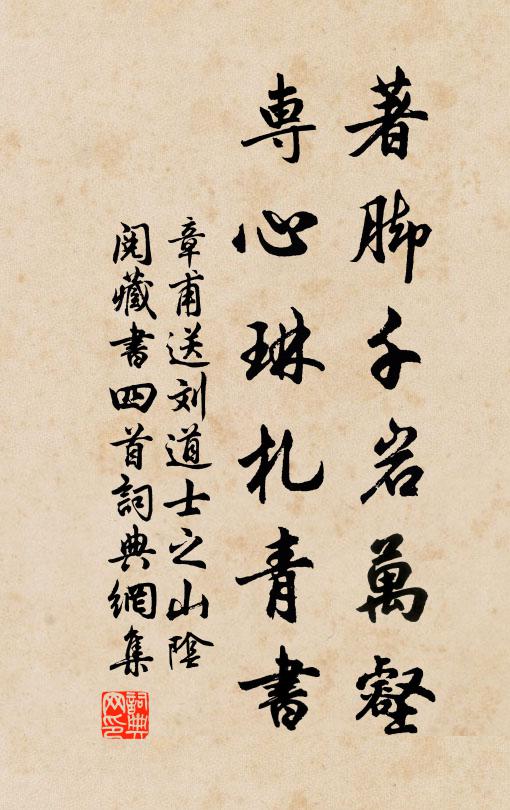 著脚千岩萬壑
専心琳札青書
章甫送刘道士之山陰
閱藏書四首詞典網集
詞典网印